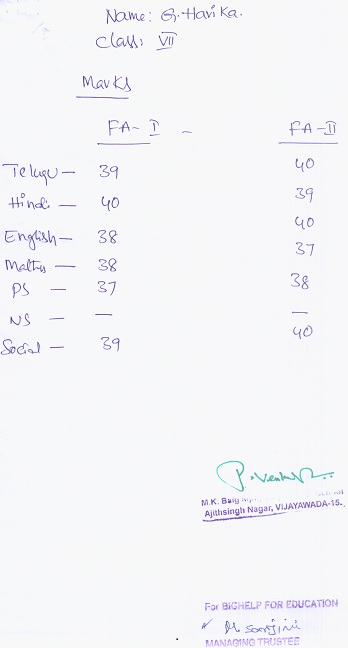 Name: G. Harika.
Class: VII
Marks
FA- I - FA-II
Telugu - 39 40
Hindi - 40 39
English - 38 40
Maths - 38 37
PS - 37 38
NS - — —
Social - 39 40
M.K. Baig
Ajithsingh Nagar, VIJAYAWADA-15.
For BIGHELP FOR EDUCATION
MANAGING TRUSTEE